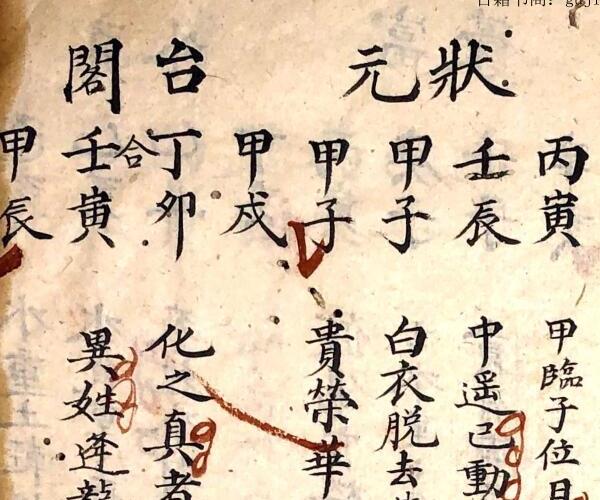 狀元
台閣
丙寅
壬辰
甲子
甲子
甲戌
丁卯
合
壬寅
甲辰
甲臨子位
中遥己動
白衣脱去
貴榮華
化之真者
異姓逢龍